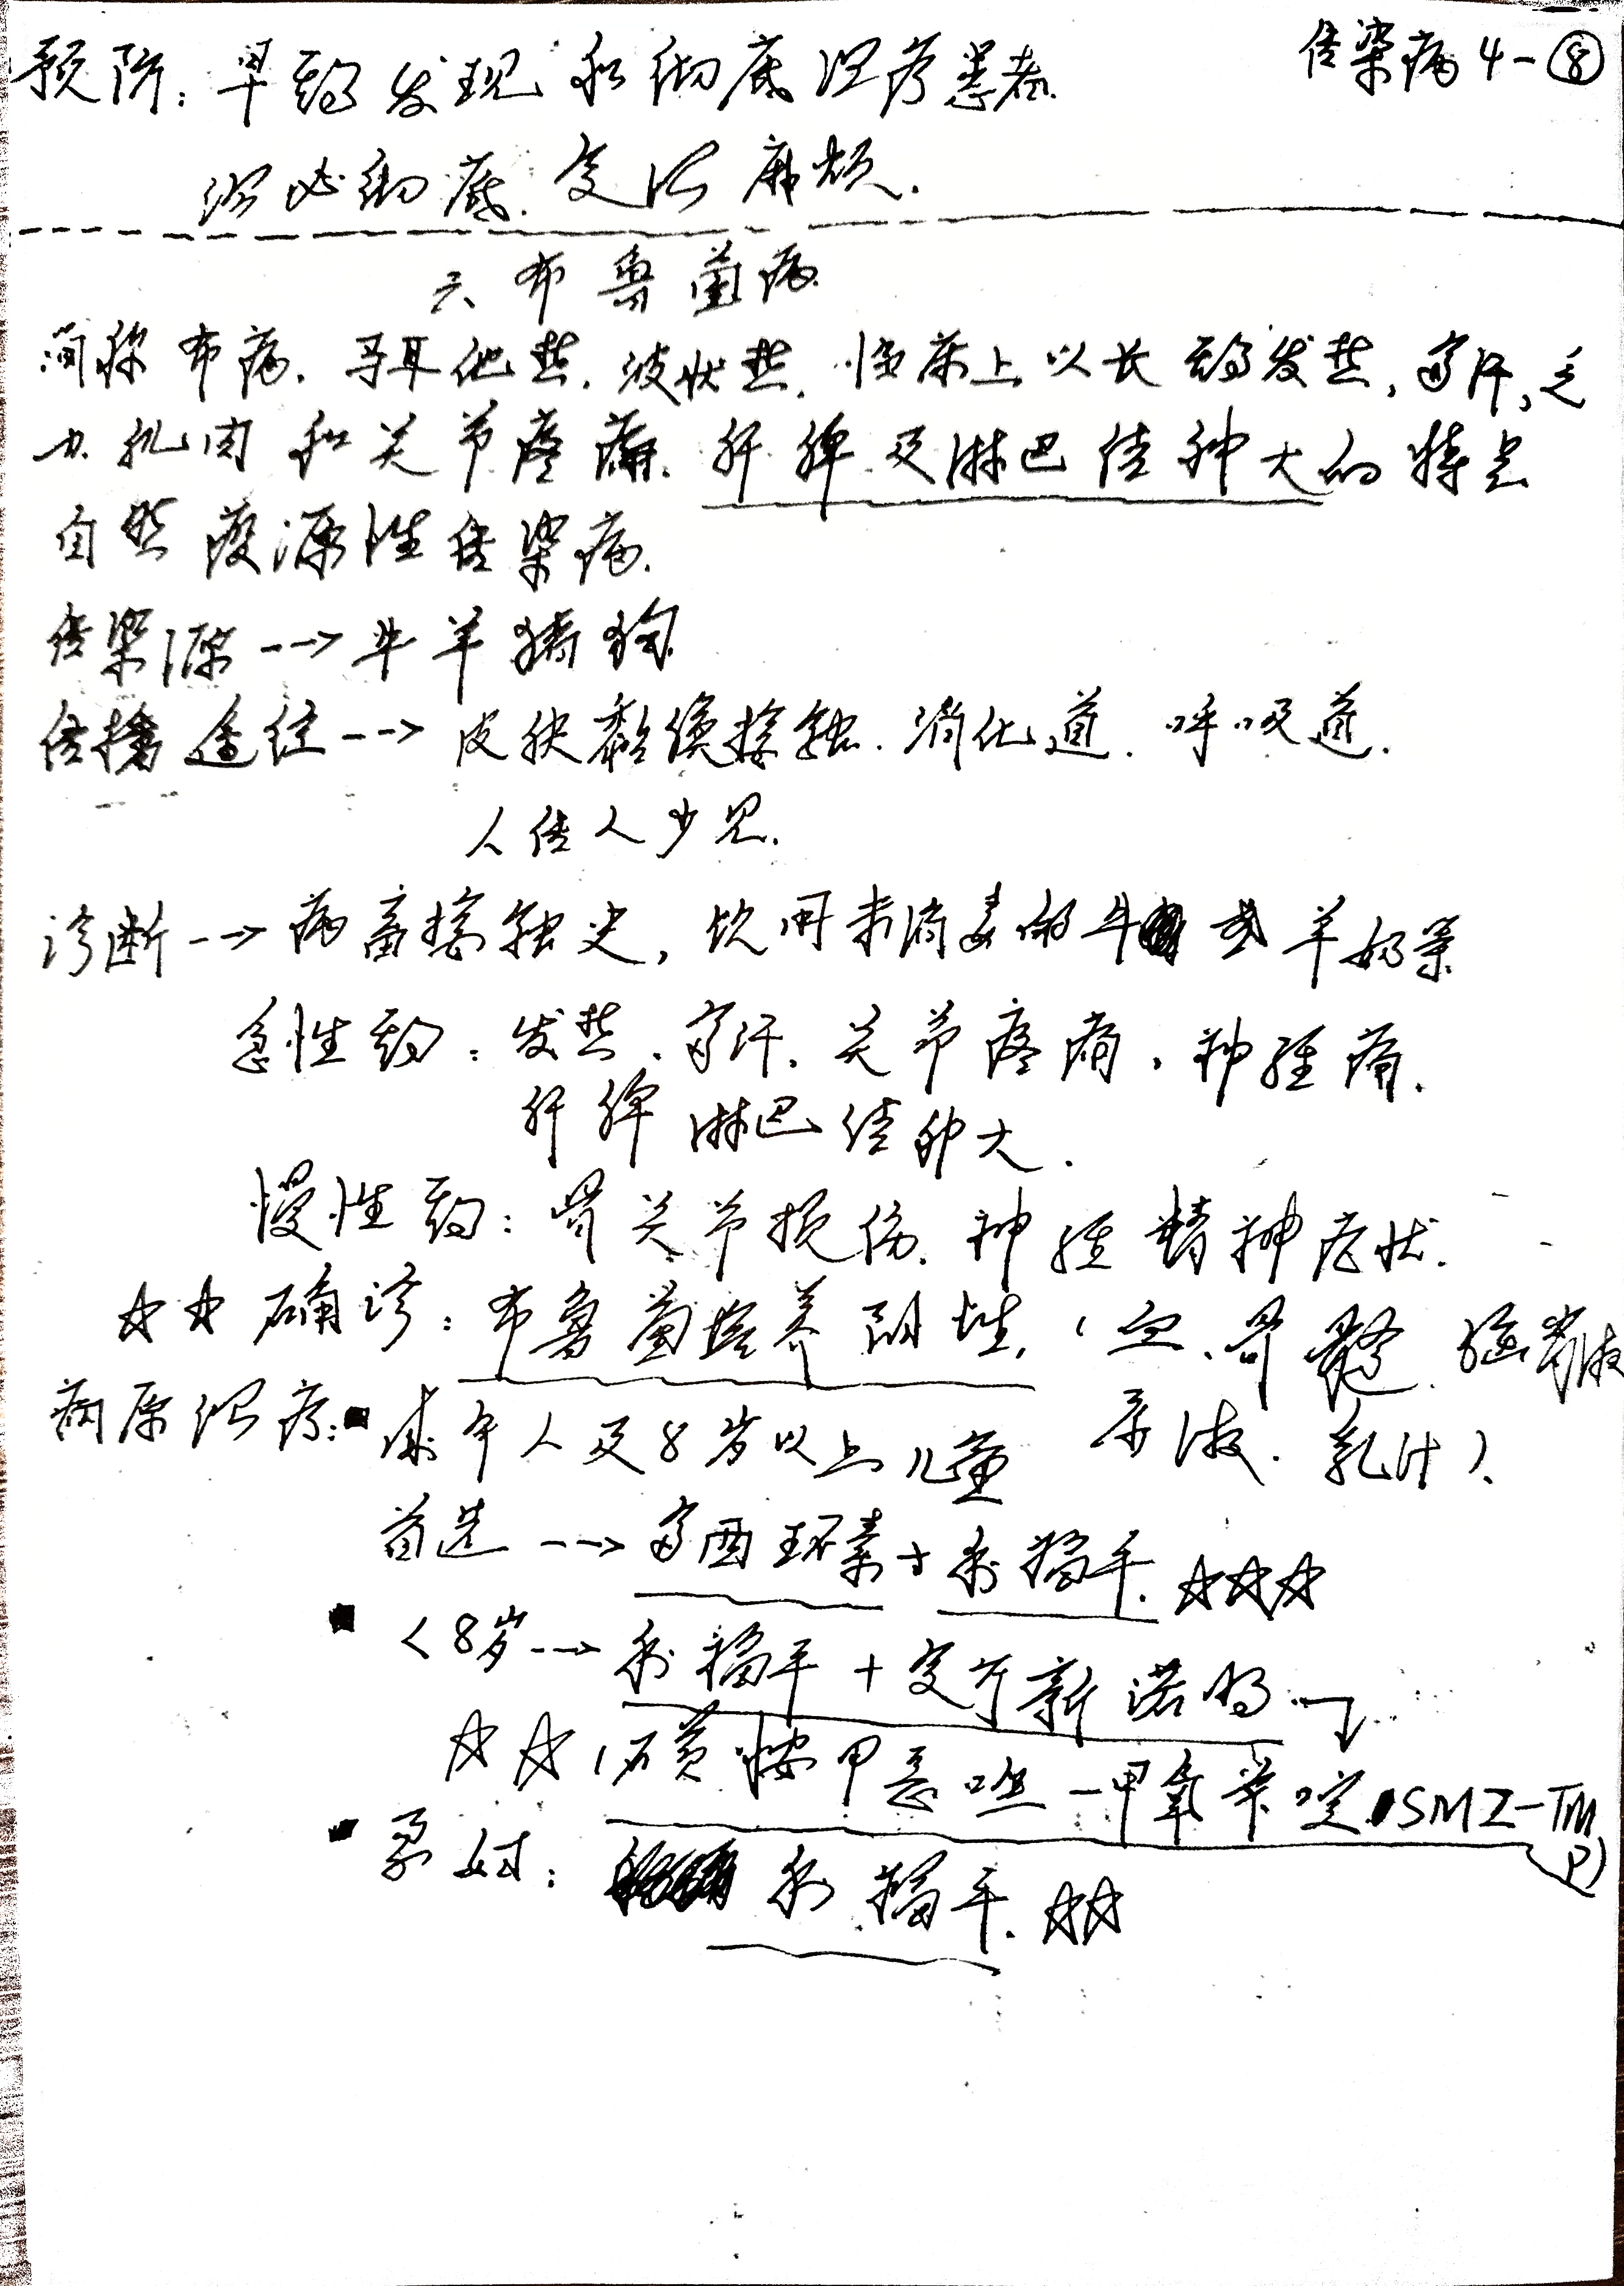 传染病4-⑧
预防：早期发现和彻底治疗患者.
务必彻底.变混麻烦.
六、布鲁菌病
简称布病.马耳他热.波状热.临床上以长期发热,多汗,乏
力.肌肉和关节疼痛.肝脾及淋巴结肿大的特点
自然疫源性传染病.
传染源-->牛羊猪狗
传播途径-->皮肤黏膜接触.消化道.呼吸道.
人传人少见.
诊断-->病畜接触史,饮用未消毒的牛或羊奶等
急性期：发热.多汗.关节疼痛.神经痛.
肝脾淋巴结肿大.
慢性期：骨关节损伤.神经精神症状.
☆☆确诊：布鲁菌培养阳性.(血.骨髓.脑脊液
尿液.乳汁).
病原治疗：■成年人及8岁以上儿童
首选-->多西环素+利福平.☆☆☆
■<8岁-->利福平+复方新诺明
☆☆(磺胺甲恶唑-甲氧苄啶SMZ-TMP)
■孕妇：利福平.☆☆